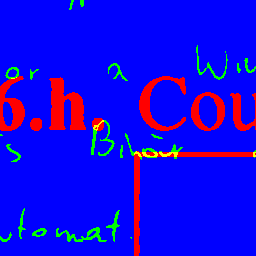 or a Wi
6.h. Cou
s Bihar
utomat